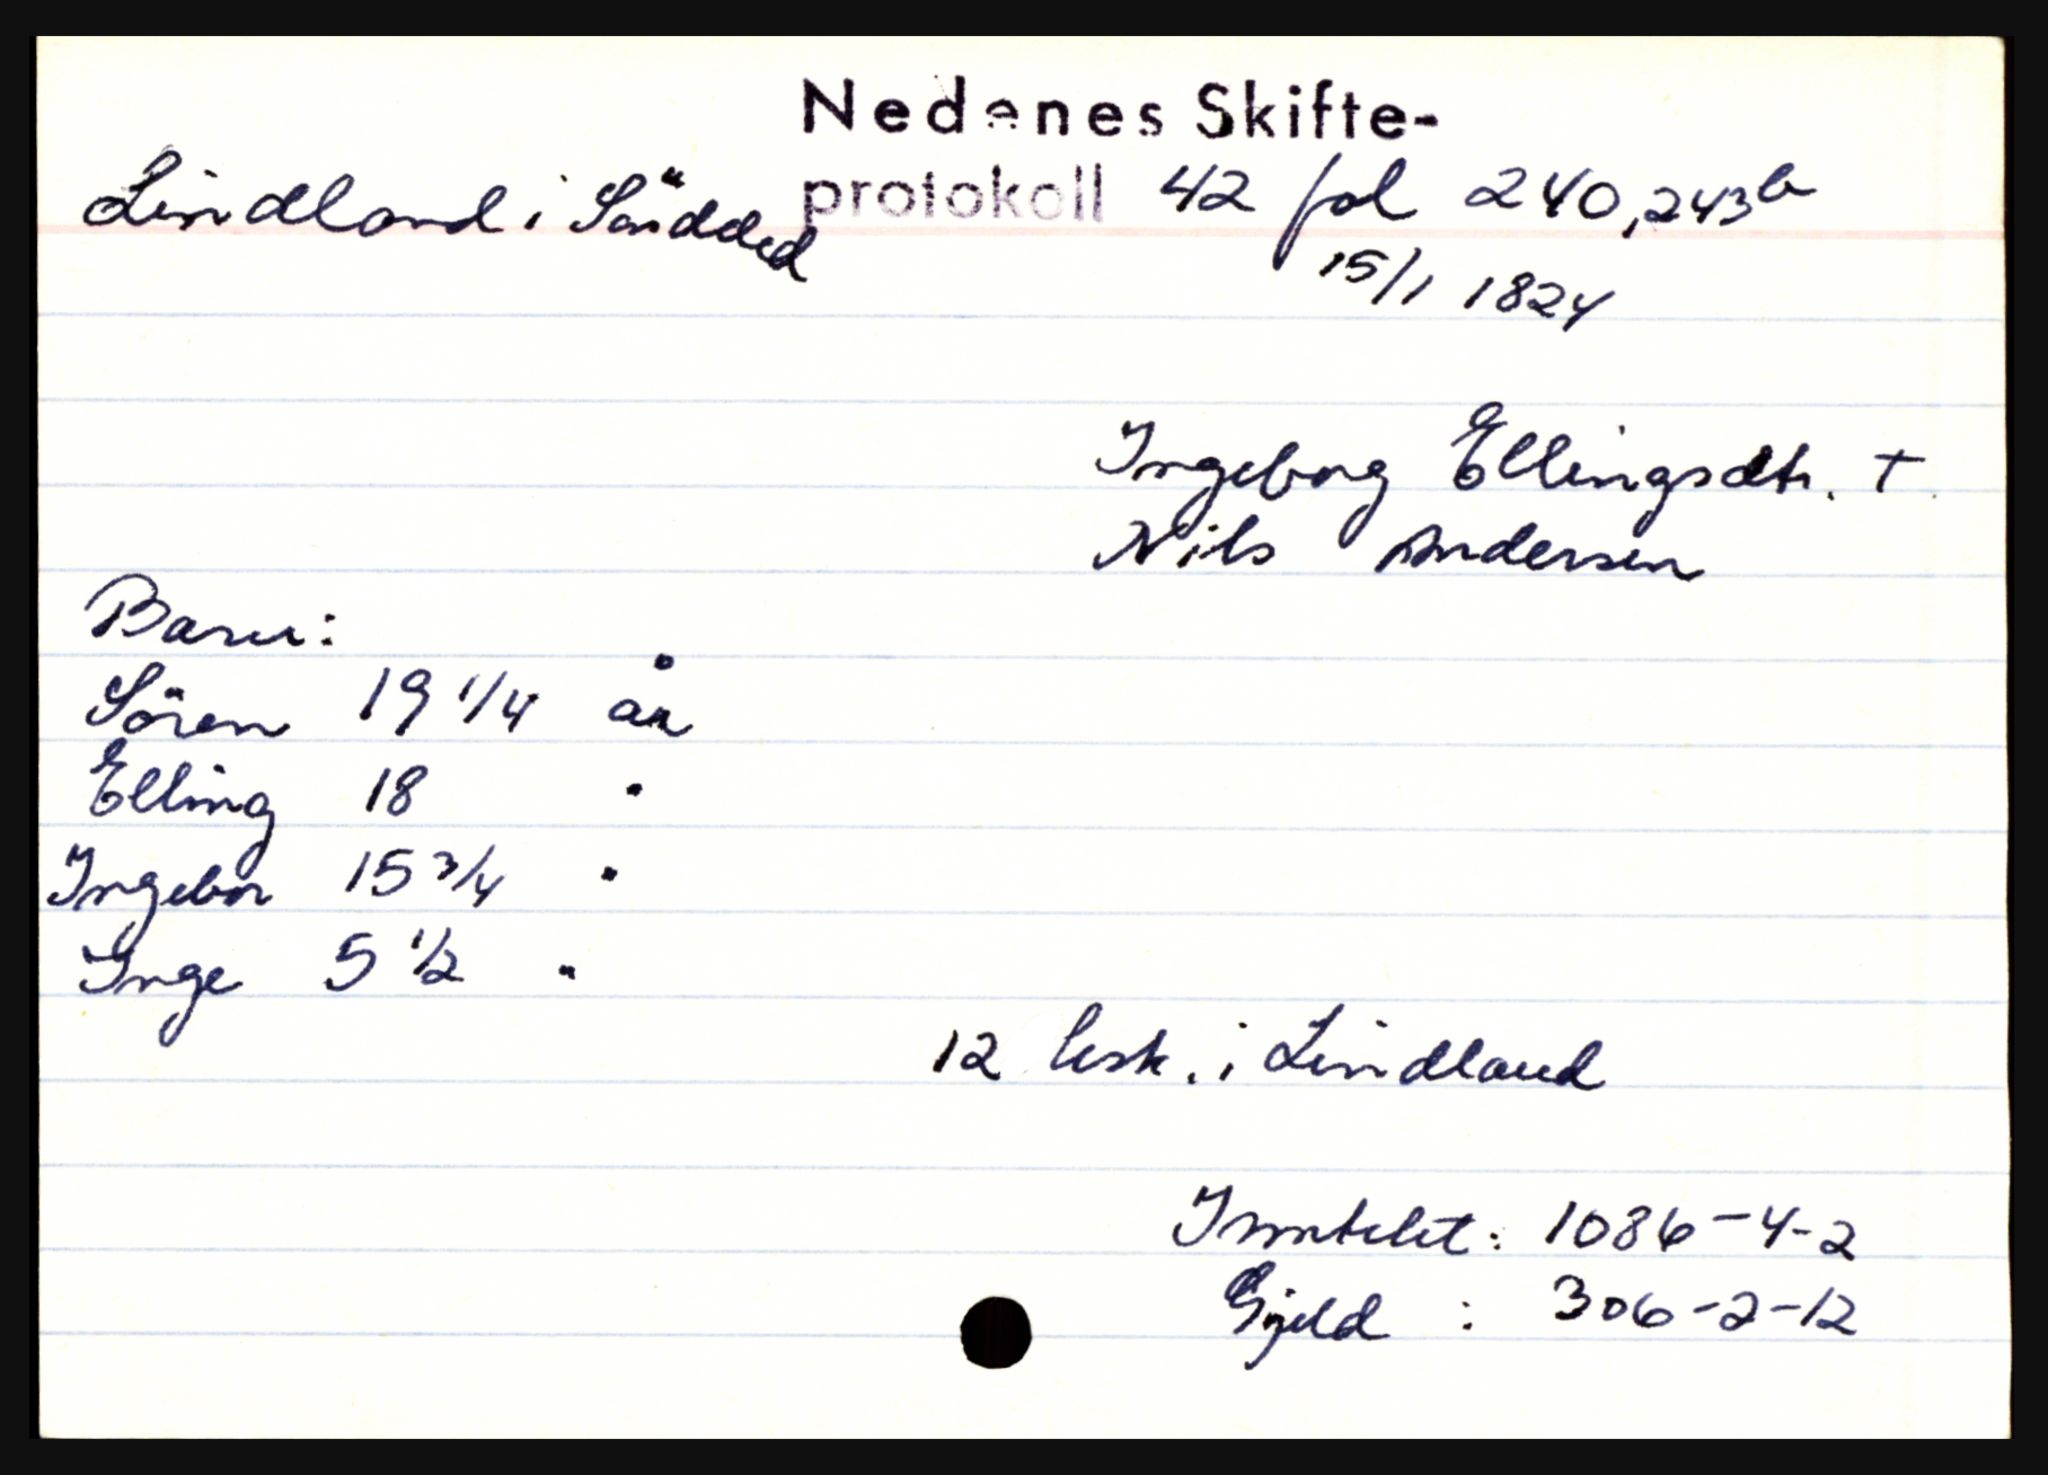 Nedenes Skifte-
Lindland i Söndeled protokoll 42 fol 240, 243b
15/1 1824
Ingeborg Ellingsdtr. +
Nils Andersen
Barn:
Sören 19 1/4 år
Elling 18 "
Ingebor 15 3/4 "
Inge 5 1/2 "
12 lisk. i Lindland
Inntekt: 1086-4-2
Gjeld : 306-2-12